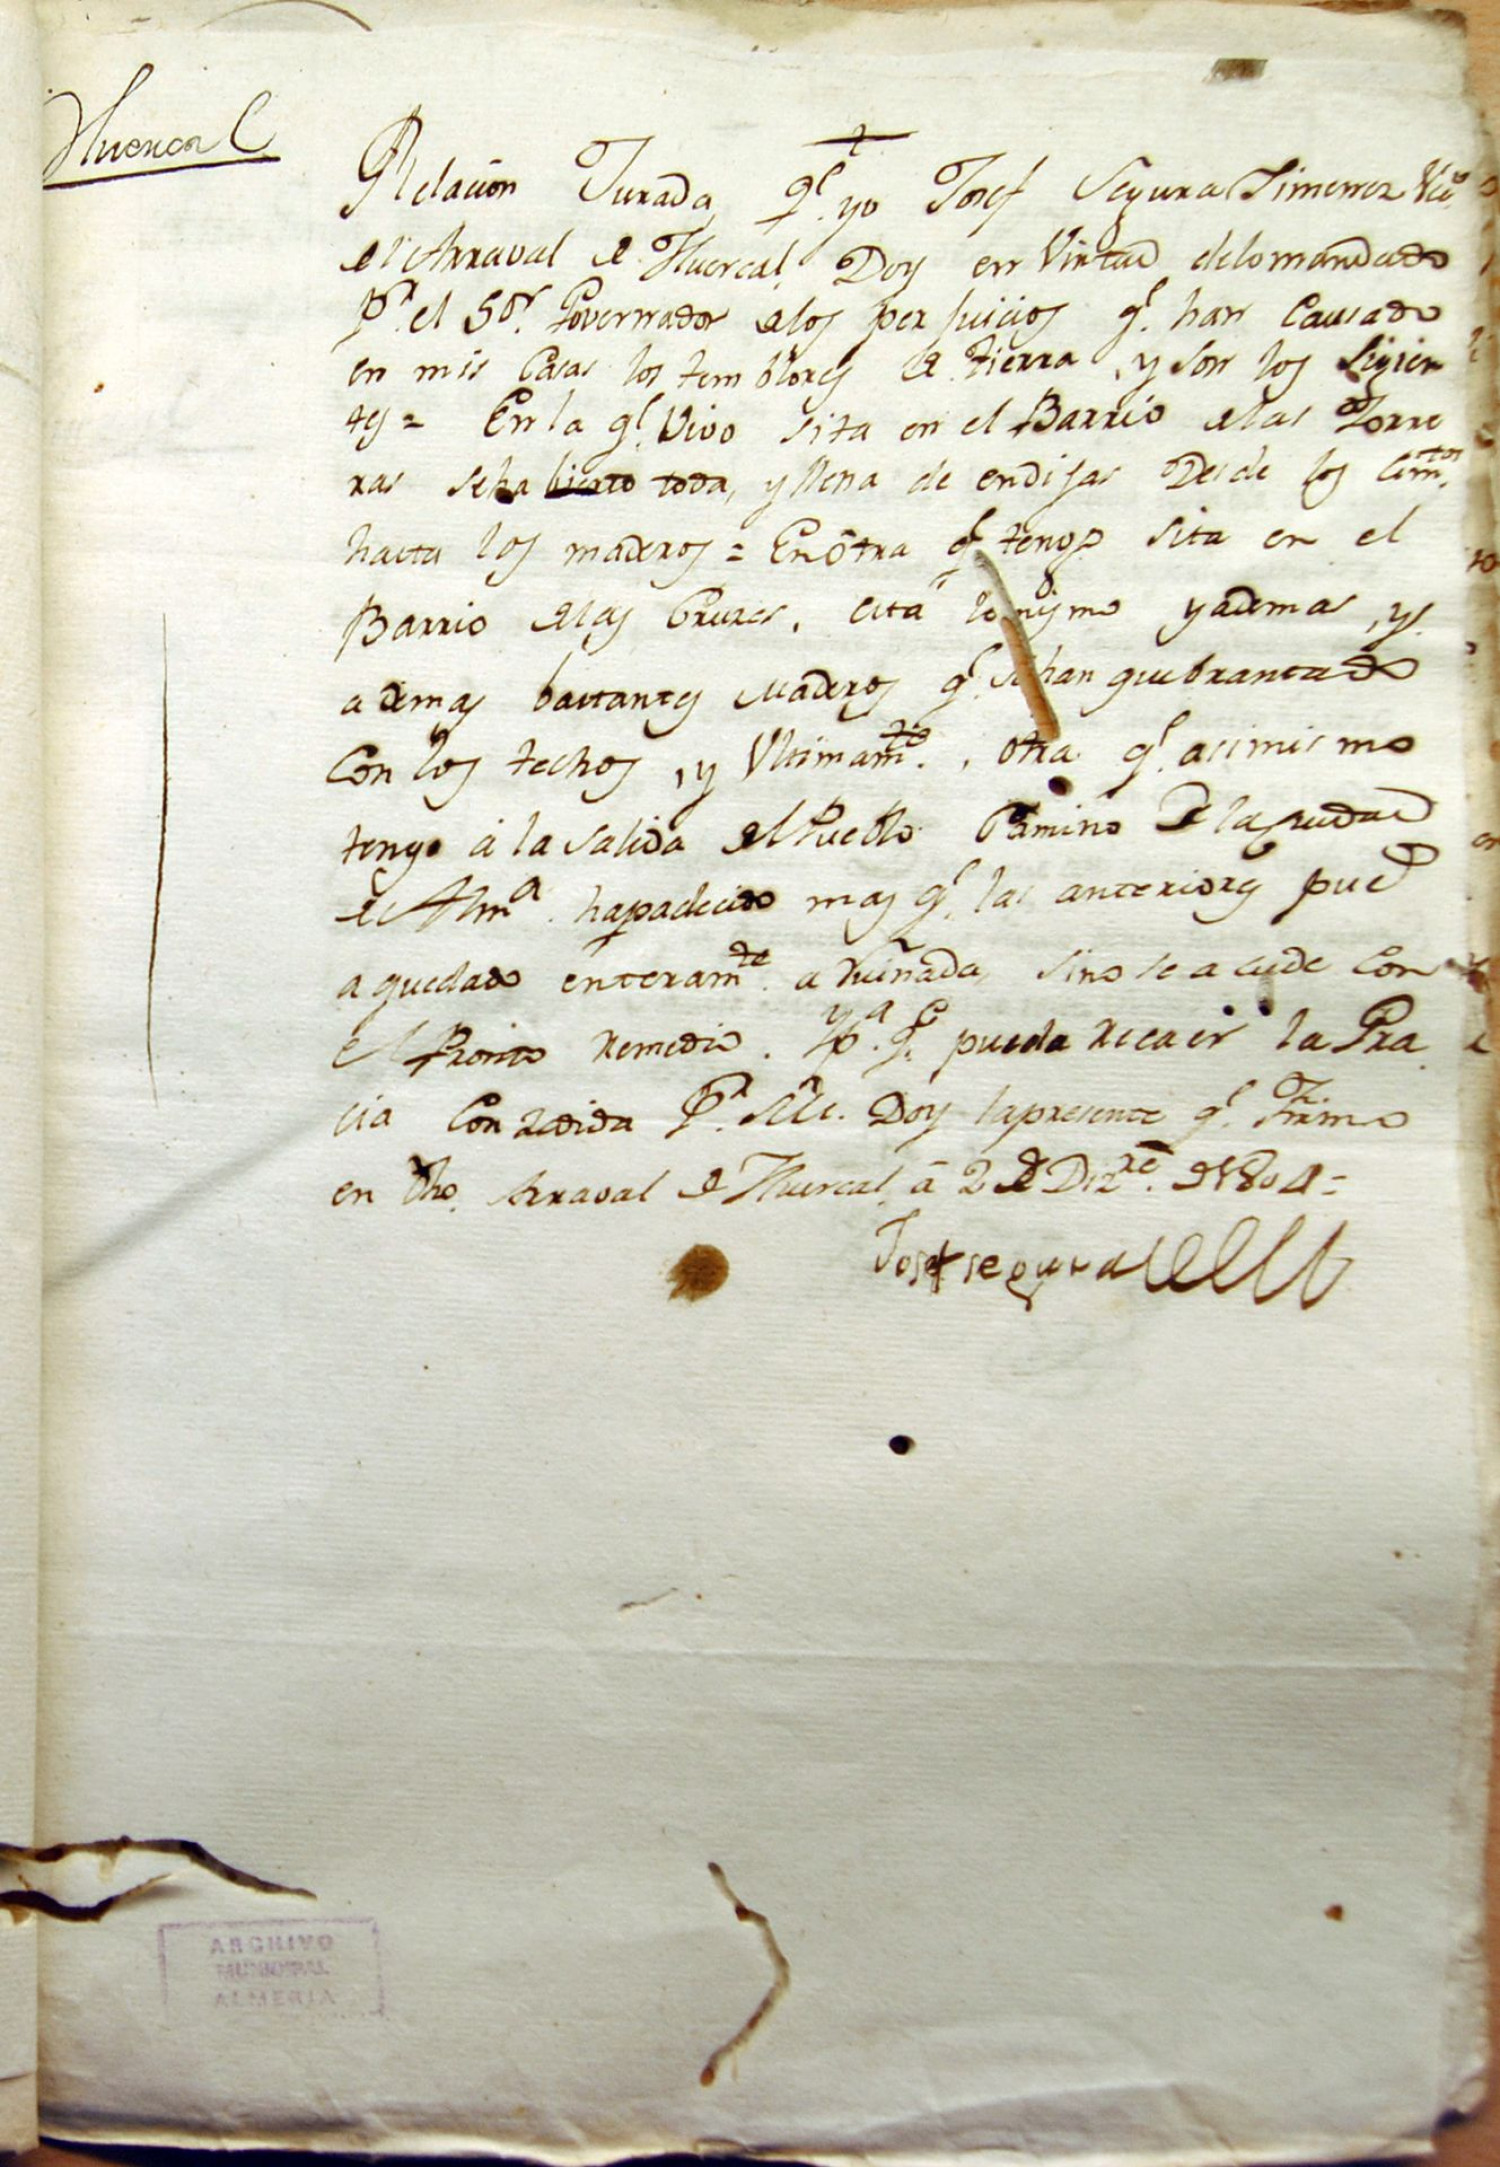 Huercal
Relacion Jurada, qe. yo Josef Segura Jimenez Veco.
del Arraval de Huercal, Doy en Virtud delo mandado
Pr. el Sor. Governador delos perjuicios qe. han Causado
en mis Casas los temblores de tierra, y son los Siguien
tes = En la qe. Vivo sita en el Barrio delas Torre
ras seha bierto toda, y llena de endijas Desde los Cimtos.
hasta los maderos = En ôtra qe. tengo sita en el
Barrio delas Cruces, está lo mismo y ademas, y.
ademas bastantes maderos qe. se han quebrantado
Con los techos, y Ultimamte., otra qe. asimismo
tengo á la salida del Pueblo Camino de la Ciudad
de Alma. ha padecido mas qe. las anteriores pues
a quedado enteramte. a Ruinada, sino se acude Con
el Pronto Remedio. Ypa. qe. pueda Recaer la Gra
cia Conzedida Pr. S.E. Doy la presente qe. Firmo
en dho. Arraval de Huercal, á 2 de Dizre. de 1804 =
Josef segura
ARCHIVO
MUNICIPAL
ALMERIA